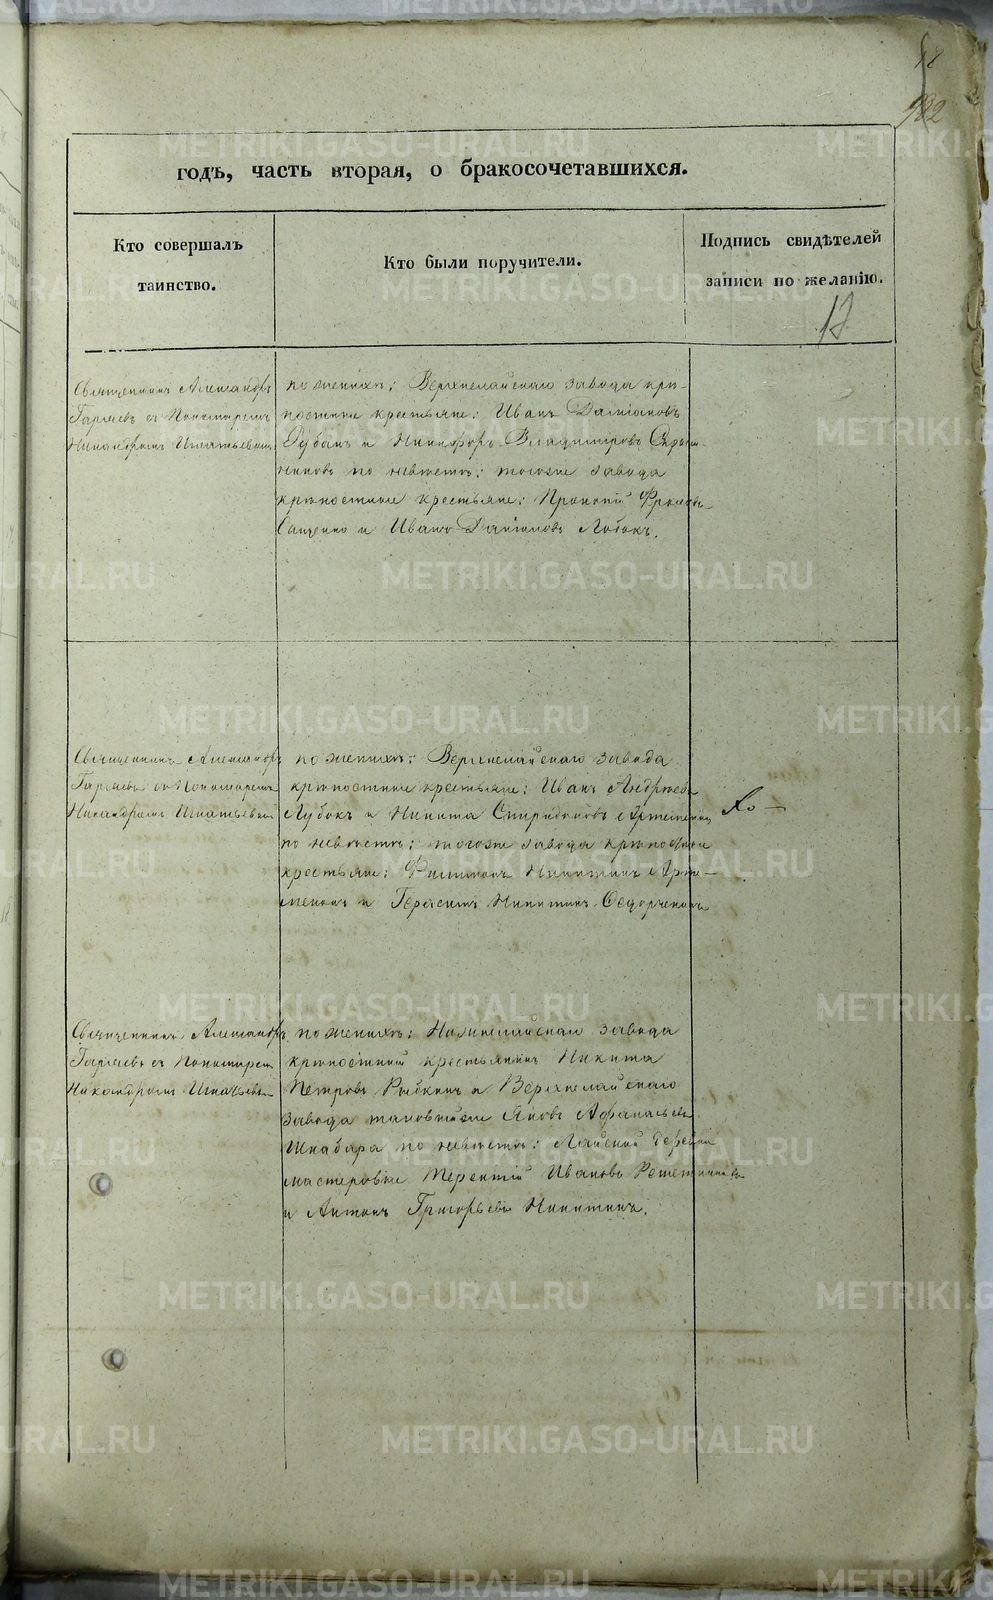 182
годъ, часть вторая, о бракосочетавшихся.
Кто совершалъ
таинство.
Кто были поручители.
Подпись свидѣтелей
записи по желанію.
12
Священникъ Александръ
Гаряевъ съ Пономаремъ
Никандромъ Игнатьевымъ
по женихѣ: Верхнелайскаго завода крѣ-
постные крестьяне: Иванъ Даміановъ
и Никифоръ Владиміровъ
по невѣстѣ: тогоже завода
крѣпостные крестьяне: Прокопій
Сащенко и Иванъ Даніиловъ Лобокъ.
Священникъ Александръ
Гаряевъ съ Пономаремъ
Никандромъ Игнатьевымъ
по женихѣ: Верхнелайскаго завода
крѣпостные крестьяне: Иванъ Андреевъ
Лубокъ и Никита Спиридоновъ Артеменко
по невѣстѣ: тогоже завода крѣпостные
крестьяне: Филимонъ Никитинъ Арте-
менко и Герасимъ Никитинъ Федорченко
Священникъ Александръ
Гаряевъ съ Пономаремъ
Никандромъ Игнатьевымъ
по женихѣ: Нижнелайскаго завода
крѣпостный крестьянинъ Никита
Петровъ Рыбкинъ и Верхнелайскаго
завода таковыйже Яковъ Афанасьевъ
Шкабара по невѣстѣ: Лайской деревни
мастеровые Терентій Ивановъ Решетниковъ
и Антонъ Григорьевъ Никитинъ.
METRIKI.GASO-URAL.RU